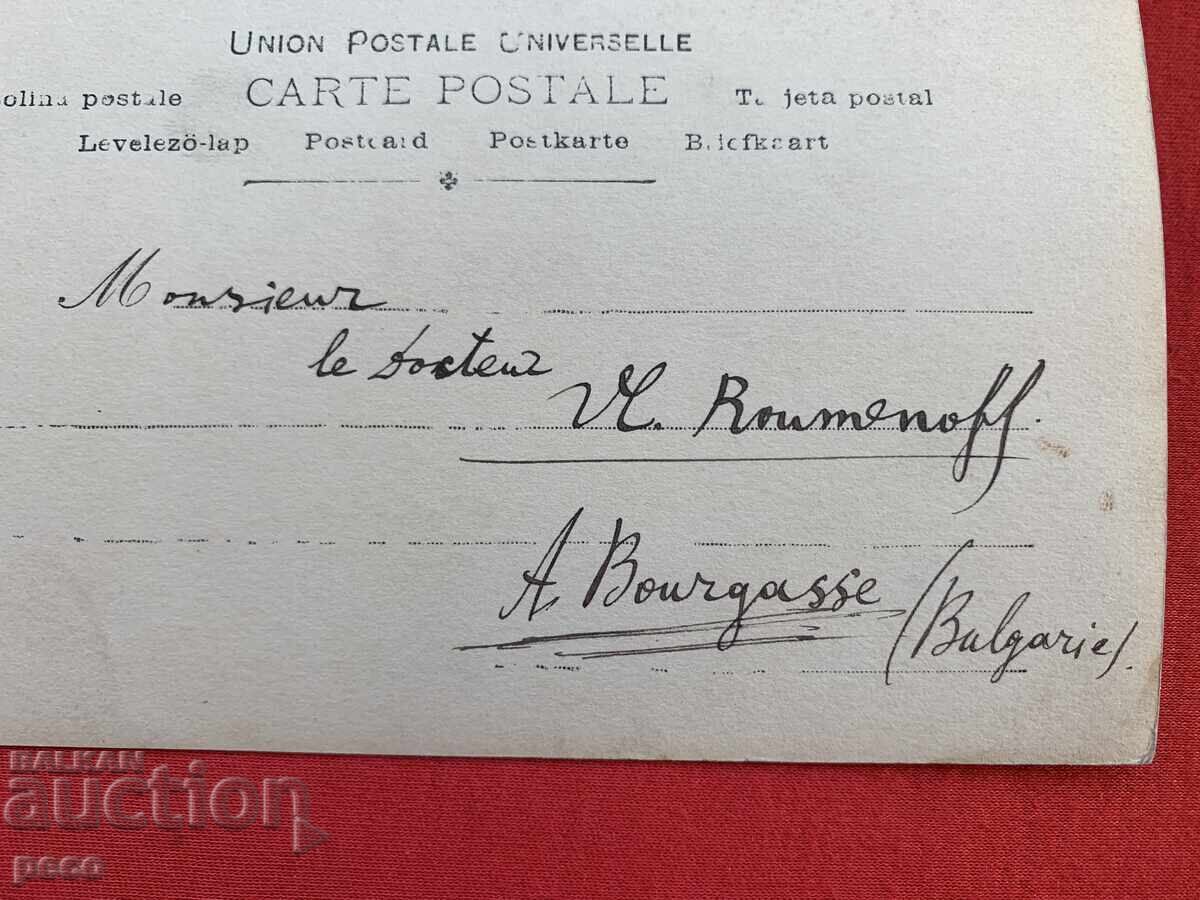 UNION POSTALE UNIVERSELLE
olina postale CARTE POSTALE Tarjeta postal
Levelezö-lap Postcard Postkarte Briefkaart
Monsieur
le Docteur
Vl. Roumenoff.
A Bourgasse (Bulgarie).
BALKAN
auction
peco